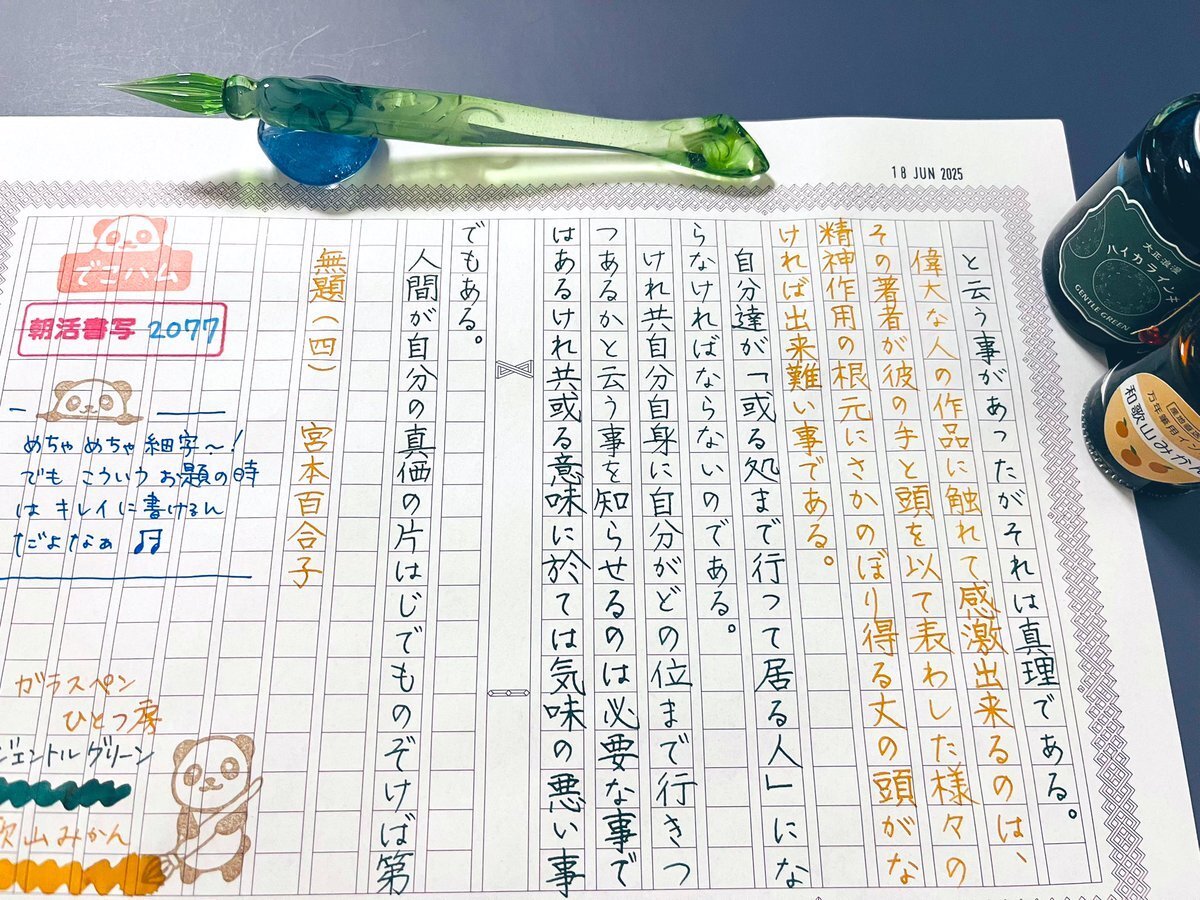 18 JUN 2025
と云う事があったがそれは真理である。
偉大な人の作品に触れて感激出来るのは、
その著者が彼の手と頭を以て表わした様々の
精神作用の根元にさかのぼり得る丈の頭がな
ければ出来難い事である。
自分達が「或る処まで行って居る人」にな
らなければならないのである。
けれ共自分自身に自分がどの位まで行きつ
つあるかと云う事を知らせるのは必要な事で
はあるけれ共或る意味に於ては気味の悪い事
でもある。
人間が自分の真価の片はじでものぞけば第
無題(四) 宮本百合子
でこハム
朝活書写 2077
めちゃめちゃ細字〜!
でも こういう お題の時
は キレイに書けるん
だよなぁ ♫
ガラスペン
ひとつ房
ジェントルグリーン
歌山みかん
大正浪漫
ハイカラインキ
GENTLE GREEN
万年筆用イン
和歌山みかん